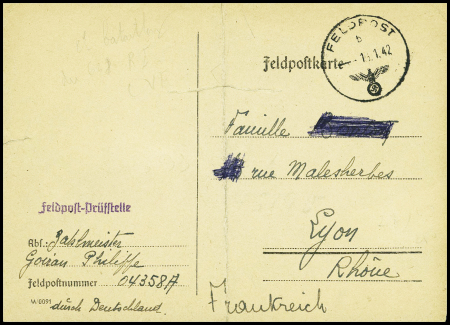 FELDPOST
b
1.42
Feldpostkarte
Famille
rue Malesherbes
Lyon
Rhône
Frankreich
Feldpost-Prüfstelle
Abs.: Zahlmeister
Goiran Philippe
Feldpostnummer 04358A
W0091 durch Deutschland.